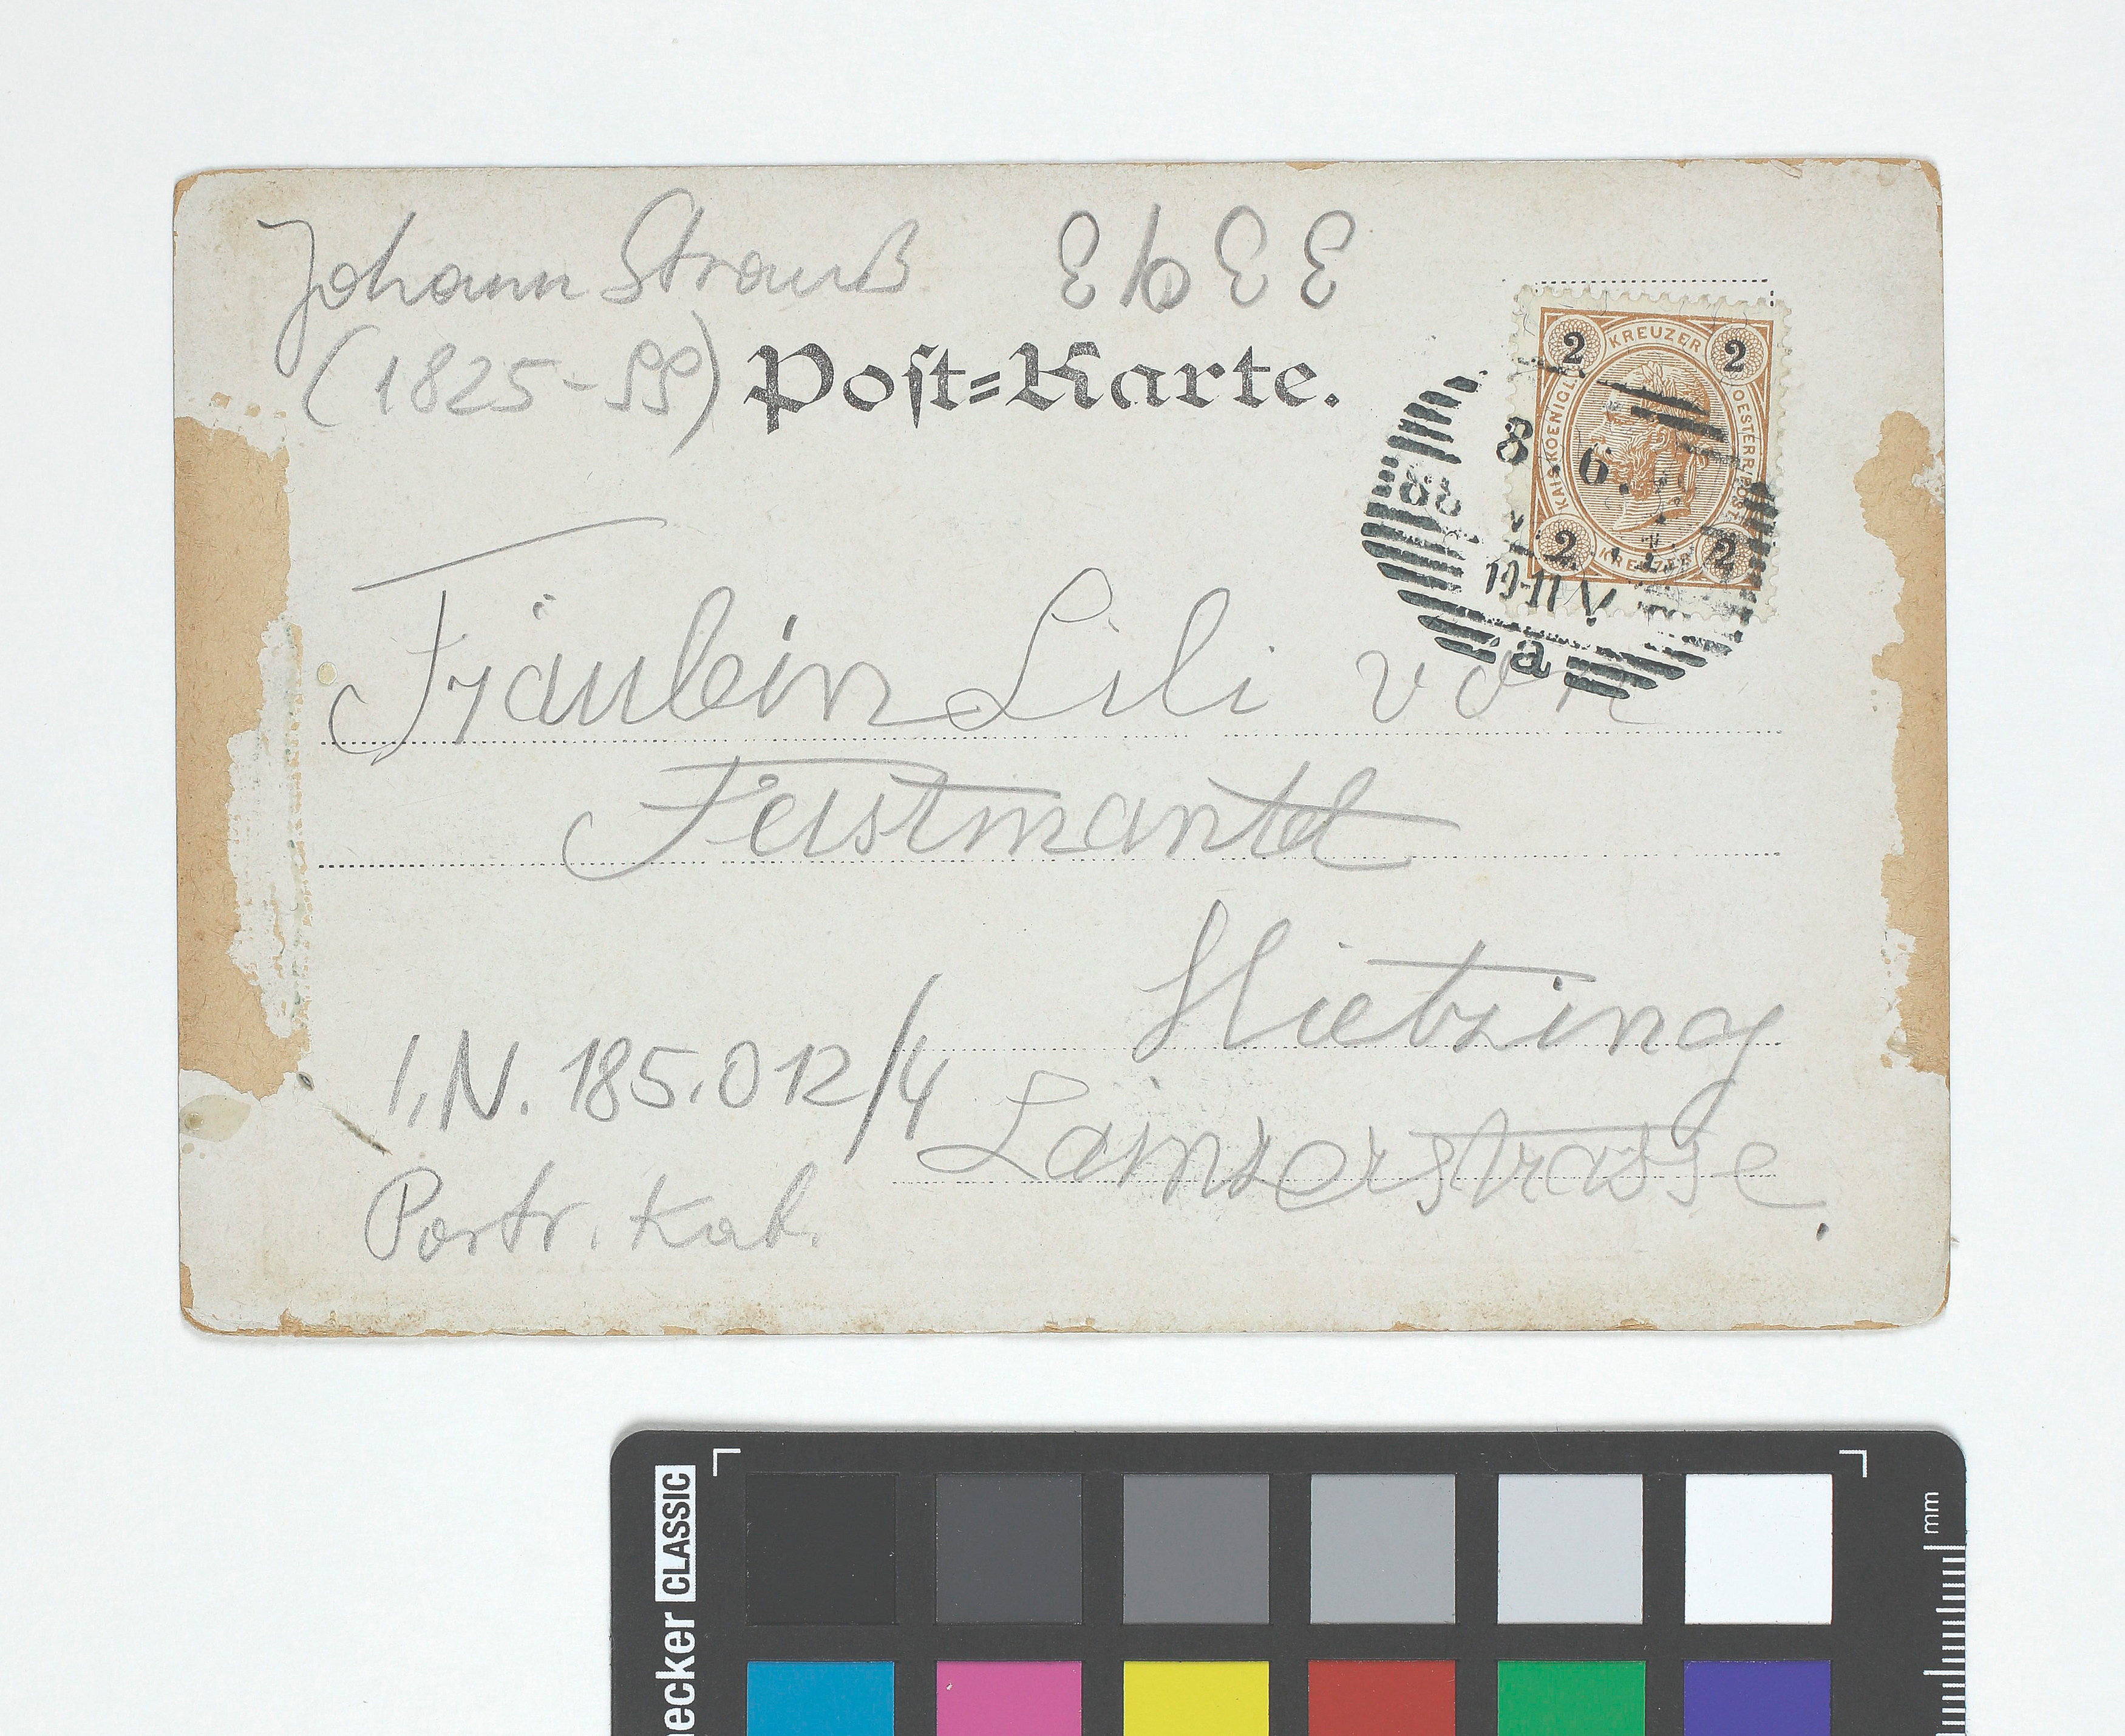 Johann Strauß
(1825-99)
Post=Karte.
2 KREUZER 2
KAIS. KOENIGL. OESTERR. POST
2 KREUZER 2
8. 6.
10-11 V
a
Fräulein Lili von
Feistmantel
Hietzing
Lainzerstrasse.
I.N. 185.012/4
Portr. Kat.
CLASSIC
ecker
mm